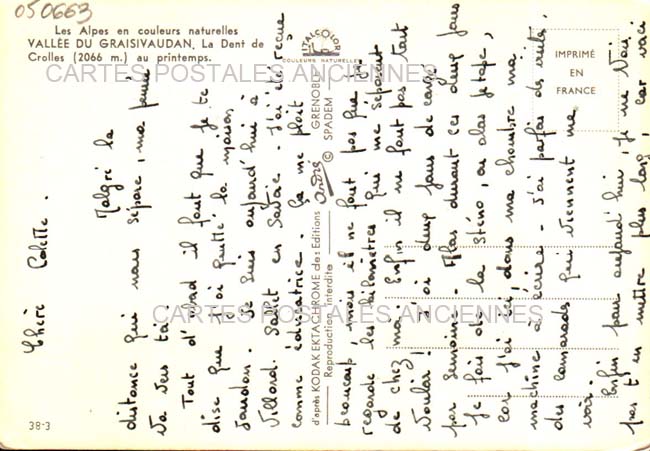 050663
Les Alpes en couleurs naturelles
VALLÉE DU GRAISIVAUDAN, La Dent de
Crolles (2066 m.) au printemps.
ITALCOLOR
COULEURS NATURELLES
IMPRIMÉ
EN
FRANCE
CARTES POSTALES ANCIENNES
CARTES POSTALES ANCIENNES
d'après KODAK EKTACHROME des Editions André GRENOBLE
Reproduction Interdite © SPADEM
38-3
Chère Colette.
Malgré la
distance qui nous sépare, ma pensée
va vers toi.
Tout d'abord il faut que je te
dise que j'ai quitté la maison
Je suis aujourd'hui à
Villard. Sallet en Savoie - J'ai été reçue
comme éducatrice. Ça me plaît
beaucoup, mais il ne faut pas que je
regarde les kilomètres qui me séparent
de chez moi. Enfin il ne faut pas tout
vouloir! J'ai deux jours de congé
par semaine. Mas durant ces deux jours
je fais de la sténo, ou alors je tape,
car j'ai ici, dans ma chambre ma
machine à écrire - J'ai parfois des
des camarads qui viennent me
voir.
Enfin pour aujourd'hui, je ne vais
pas t'en mettre plus long, car